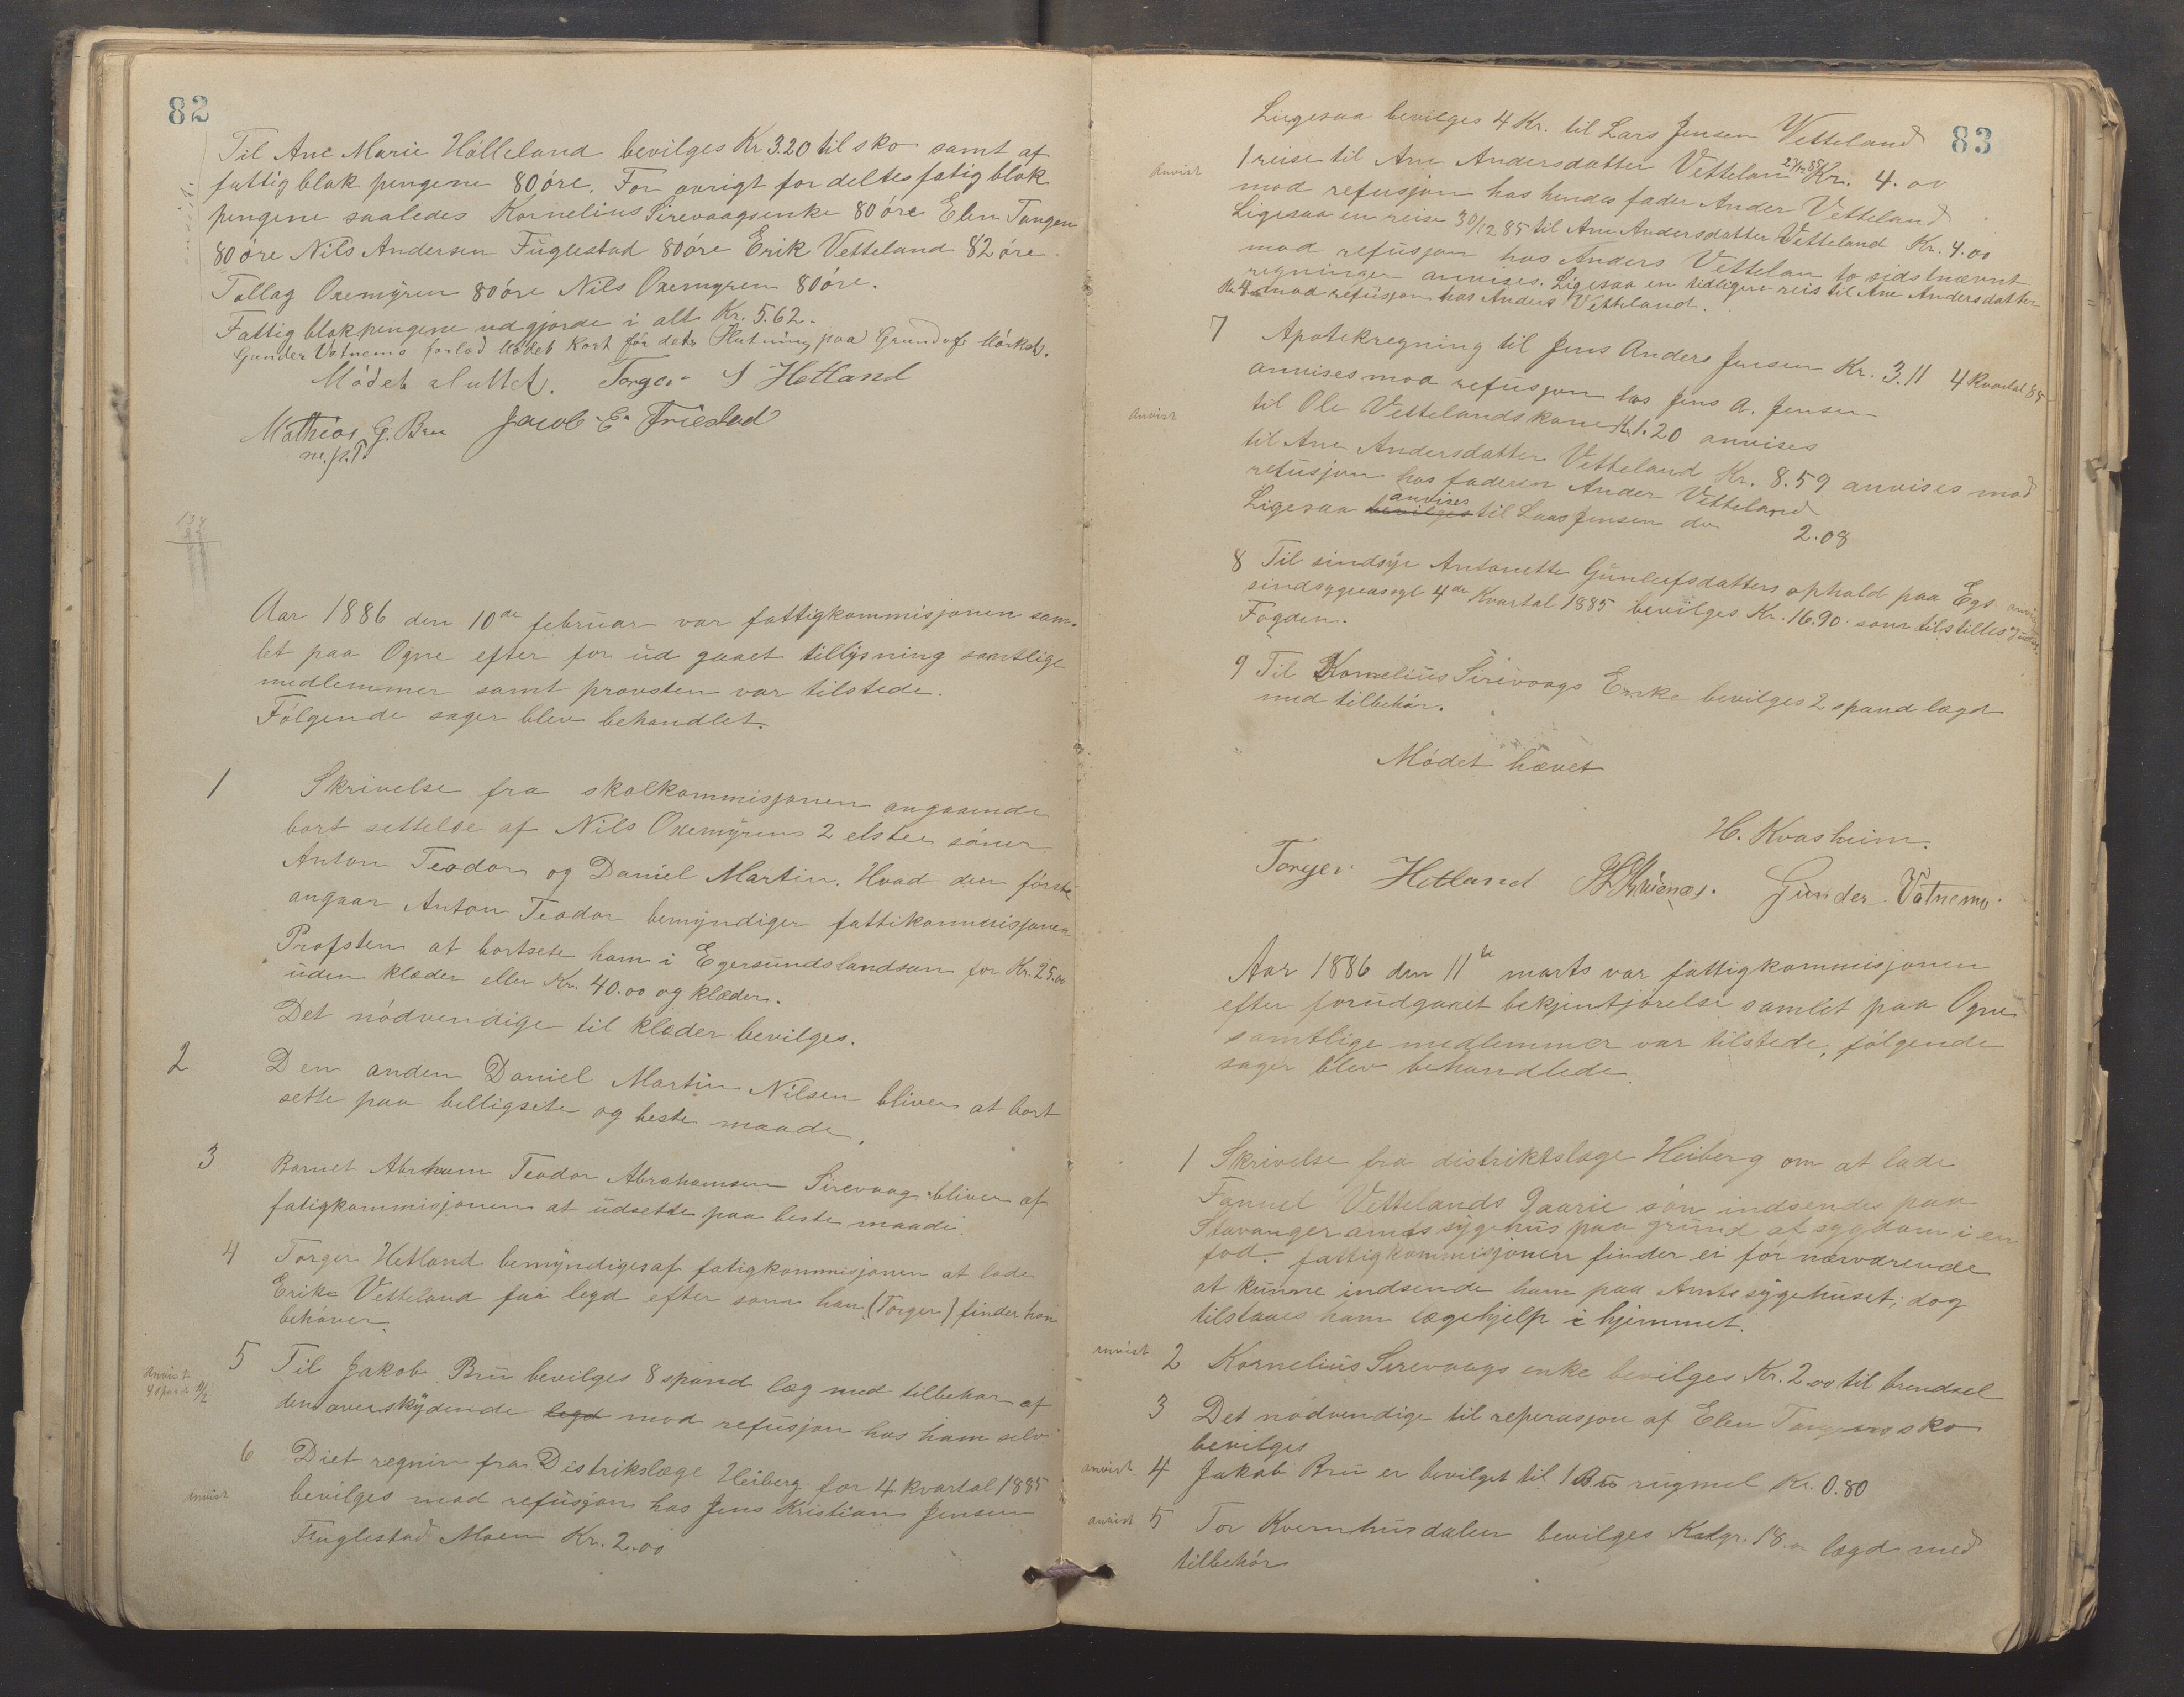 82
Til Ane Marie Hölleland bevilges Kr 3.20 til sko samt af
fattigblok pengene 80 öre. For övrigt fordeltes fatigblok
pengene saaledes Kornelius Sirevaagsenke 80 öre Elen Tangen
80 öre Nils Andersen Fuglestad 80 öre Erik Vetteland 82 öre
Tollag Oxemyren 80 öre Nils Oxemyren 80 öre.
Fattigblokpengene udgjorde i alt Kr. 5.62.
Gunder Vatnemo forlod Mödet kort för dets Slutning paa Grund af Mörket.
Mödet sluttet. Torger S Hetland
Mathias G. Bru Jacob E. Friestad
m.p.P.
134
Aar 1886 den 10de februar var fattigkommisjonen sam-
let paa Ogne efter for ud gaaet tillysning samtlige
medlemmer samt provsten var tilstede.
Fölgende sager blev behandlet.
1 Skrivelse fra skolkommisjonen angaaende
bort settelse af Nils Oxemyrens 2 elste söner
Anton Teodor og Daniel Martin. Hvad den förste
angaar Anton Teodor bemyndiger fattikommisjonen
Profsten at bortsete ham i Egersundslandsan for Kr. 25.00
uden klæder eller Kr. 40.00 og klæder.
Det nödvendige til klæder bevilges.
2 Den anden Daniel Martin Nilsen bliver at bort
sette paa billigste og beste maade.
3 Barnet Abraham Teodor Abrahamsen Sirevaag bliver af
fatigkommisjonen at udsette paa beste maade.
4 Torger Hetland bemyndiges af fatigkommisjonen at lade
Erik Vetteland faa legd efter som han (Torger) finder han
behöver.
anvist
4 spand 11/2
5 Til Jakob Bru bevilges 8 spand læg med tilbehör af
den overskydende legd mod refusjon hos ham selv.
6 Diet regnin fra Distrikslæge Heiberg for 4 kvartal 1885
anvist
bevilges mod refusjon hos Jens Kristian Jensen
Fuglestad Moen Kr. 2.00
83
Ligesaa bevilges 4 Kr. til Lars Jensen Vetteland
anvist
1 reise til Ane Andersdatter Vettelan 27/12 85 Kr. 4.00
mod refusjon hos hendes fader Ander Vetteland
Ligesaa en reise 30/12 85 til Ane Andersdatter Vetteland Kr. 4.00
mod refusjon hos Anders Vettelan to sidstnævnt
regninger anvises. Ligesaa en tidligere reis til Ane Andersdatter
Kr. 4.00 mod refusjon hos Anders Vetteland.
7 Apotekregning til Jens Anders Jensen Kr. 3.11 4 Kvartal 85
anvises mod refusjon hos Jens A. Jensen
anvist
til Ole Vettelands kone Kr. 1.20 anvises
til Ane Andersdatter Vetteland Kr. 8.59 anvises mod
refusjon hos faderen Ander Vetteland
Ligesaa bevilges anvises til Lars Jensen do 2.08
8 Til sindsyg Antonette Gunleifsdatters ophold paa Egs
sindsygeasyl 4de Kvartal 1885 bevilges Kr. 16.90 som tilstilles
Fogden.
9 Til Kornelius Sirevaags Enke bevilges 2 spand lægd
med tilbehör.
Mödet hævet
H. Kvasheim.
Torger Hetland Gunder Vatnemo
Aar 1886 den 11te marts var fattigkommisjonen
efter forudgaaet bekjentjörelse samlet paa Ogne
samtlige medlemmer var tilstede, fölgende
sager blev behandlede.
1 Skrivelse fra distriktslæge Heiberg om at lade
Fanuel Vettelands 9 aarie sön indsendes paa
Stavanger amts sygehus paa grund af sygdom i en
fod. fattigkommisjonen finder ei for nærværende
at kunne indsende ham paa Amts sygehuset, dog
tilstaaes ham lægehjelp i hjemmet.
anvist
2 Kornelius Sirevaags enke bevilges Kr. 2.00 til brendsel
3 Det nödvendige til reperasjon af Elen Tangens sko
bevilges
anvist 4 Jakob Bru er bevilget til 1 B rugmel Kr. 0.80
anvist 5 Tor Kvernhusdalen bevilges Kilgr. 18.00 lægd med
tilbehör